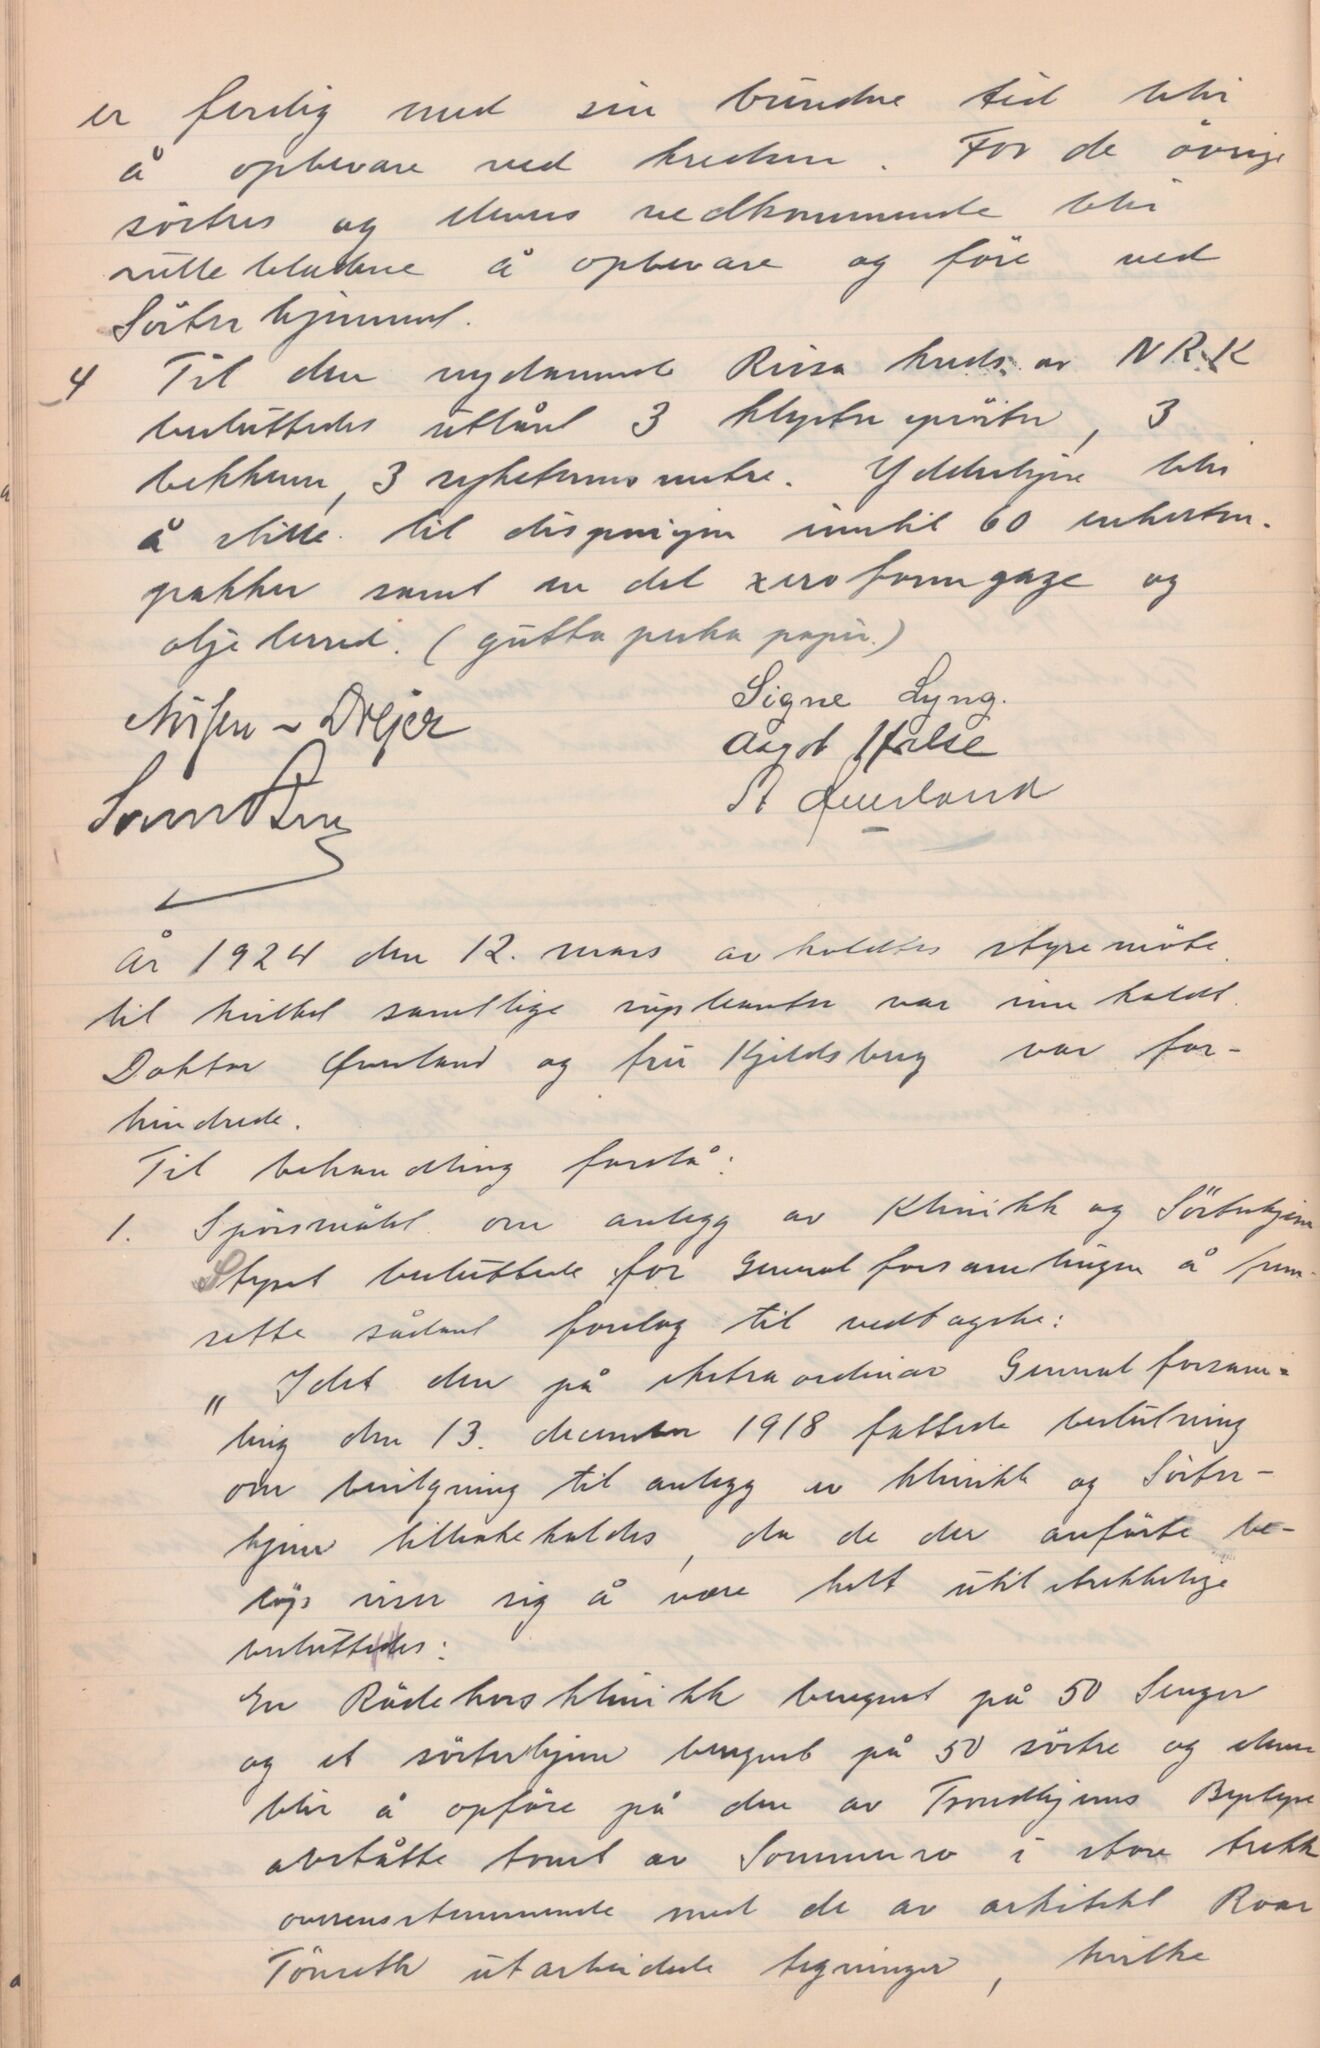 er ferdig med sin bundne tid blir
å opbevare ved kredsen. For de övrige
söstres og elevers vedkommende blir
rullebladene å opbevare og före ved
Sösterhjemmet.
4 Til den nydannede Rissa kreds av N R K
besluttedes utlånt 3 klysterspröiter, 3
bekkener, 3 syketermometre. Ydderligere blir
å stille til disposisjon inntil 60 enkeltm.
pakker samt en del xeroformgaze og
oljelerred. (gutta perka papir.)
Nissen - Drejer
Signe Lyng.
Aagot Halse
St Øverland
år 1924 den 12. mars avholdtes styremöte
til hvilket samtlige supleanter var innkaldt.
Doktor Øverland og fru Kjeldsberg var for-
hindrede.
Til behandling forelå:
1. Spörsmålet om anlegg av Klinikk og Sösterhjem
Styret besluttede for Generalforsamlingen å frem-
sette sådant forslag til vedtagelse:
„ Idet den på ekstraordinær Generalforsam-
ling den 13. december 1918 fattede beslutning
om bevilgning til anlegg av klinikk og Söster-
hjem tilbakekaldes, da de der anförte be-
löp viser sig å være helt utilstrekkelige
besluttedes:
En Rödekorsklinikk beregnet på 50 Senger
og et sösterhjem beregnet på 50 söstre og elever
blir å opföre på den av Trondhjems Bystyre
avståtte tomt av Sommerro i store trekk
overensstemmende med de av arkitekt Roar
Tönseth utarbeidede tegninger, hvilke